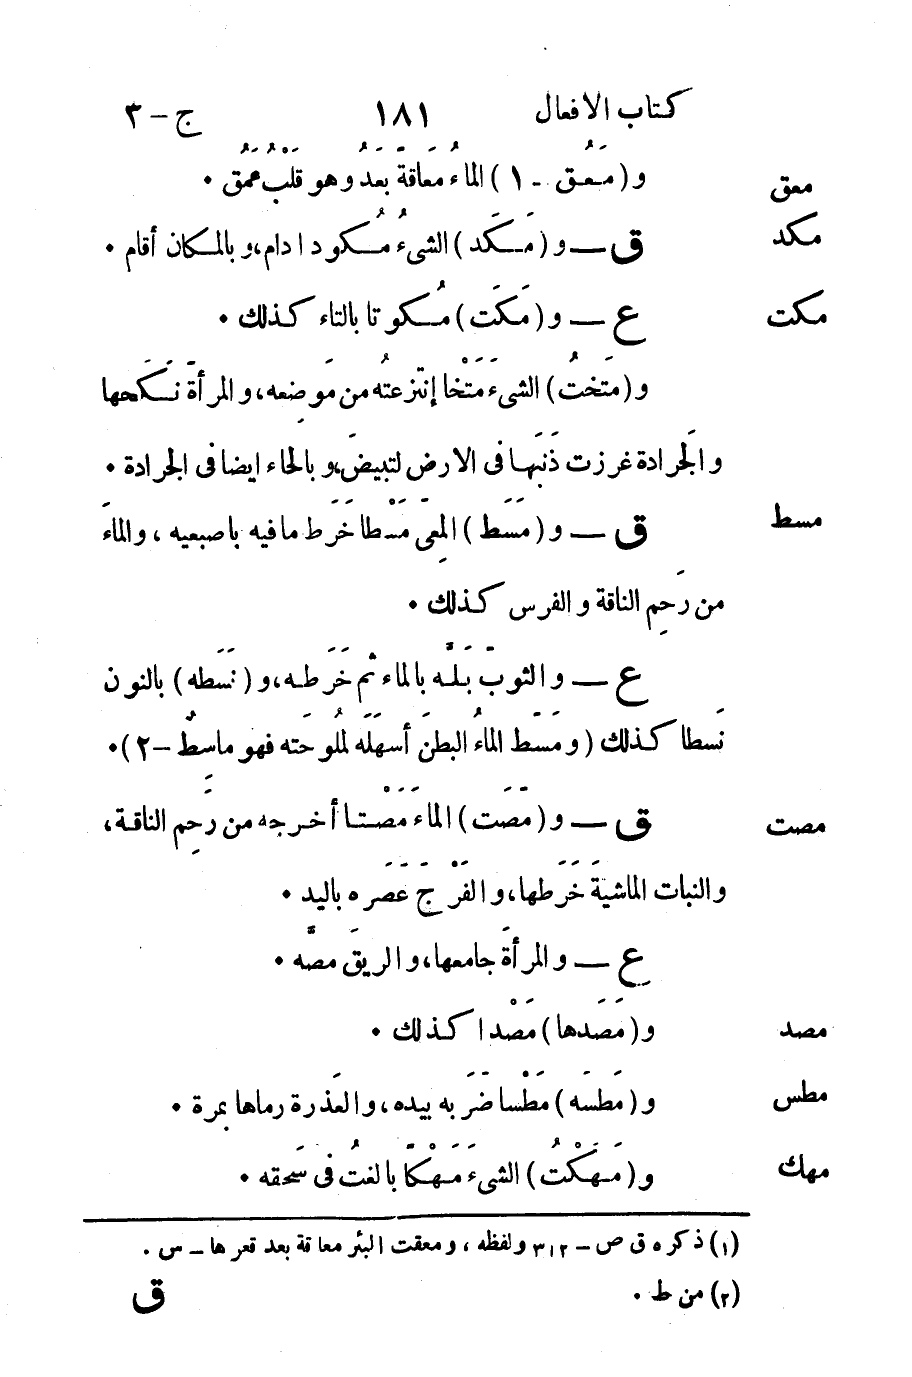 كتاب الافعال ١٨١ ج – ٣
معق و (مَعُق - ١) الماءُ مَعَاقَةً بَعُد وهو قَلْبُ عَمُقَ •
مكد ق — و (مَكَد) الشيءُ مُكُودا دام، و بالمكان أقام •
مكت ع — و (مَكَت) مُكوتا بالتاء كذلك •
و (مَتَختُ) الشيءَ مَتْخا إنتزعتُه من مَوضِعه، و المرأةَ نَكَحها
والجَرادة غرزت ذَنَبَها فى الارض لتَبِيضَ، و بالحاء ايضا فى الجرادة •
مسط ق — و (مَسَط) المِعَى مَسْطا خَرَط ما فيه باصبعيه ، والماءَ
من رَحِم الناقة و الفرس كذلك •
ع — و الثوبَ بَلَّه بالماء ثم خَرَطه، و (نَسَطه) بالنون
نَسطا كذلك (و مَسَط الماءُ البطنَ أسهَلَه لمُلُوحَته فهو ماسِطٌ – ٢) •
مصت ق — و (مَصَت) الماءَ مَصْتا أخرجه من رَحِم الناقة،
والنبات الماشيةَ خَرَطها، و الفَرْجَ عَصَره باليد •
ع — و المرأةَ جامعها، و الريقَ مصَّه •
مصد و (مَصَدها) مَصْدا كذلك •
مطس و (مَطَسَه) مَطْسا ضَرَبه بيده، و العَذرة رماها بمرة •
مهك و (مَهَكْتُ) الشيءَ مَهْكًا بالغتُ فى سَحقه •
(١) ذكره ق ص – ٣١٢ ولفظه ، و معقت البئر معاقة بعد قعرها – س .
(٢) من ط •
ق